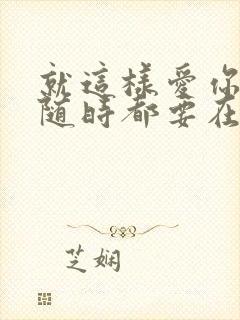 就這樣愛你
隨時都要在
芝娴